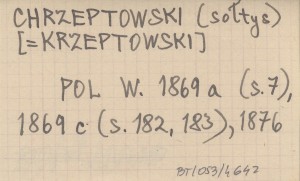 CHRZEPTOWSKI (sołtys)
[=KRZEPTOWSKI]
POL W. 1869 a (s.7),
1869 c (s. 182, 183), 1876
BT/053/4642